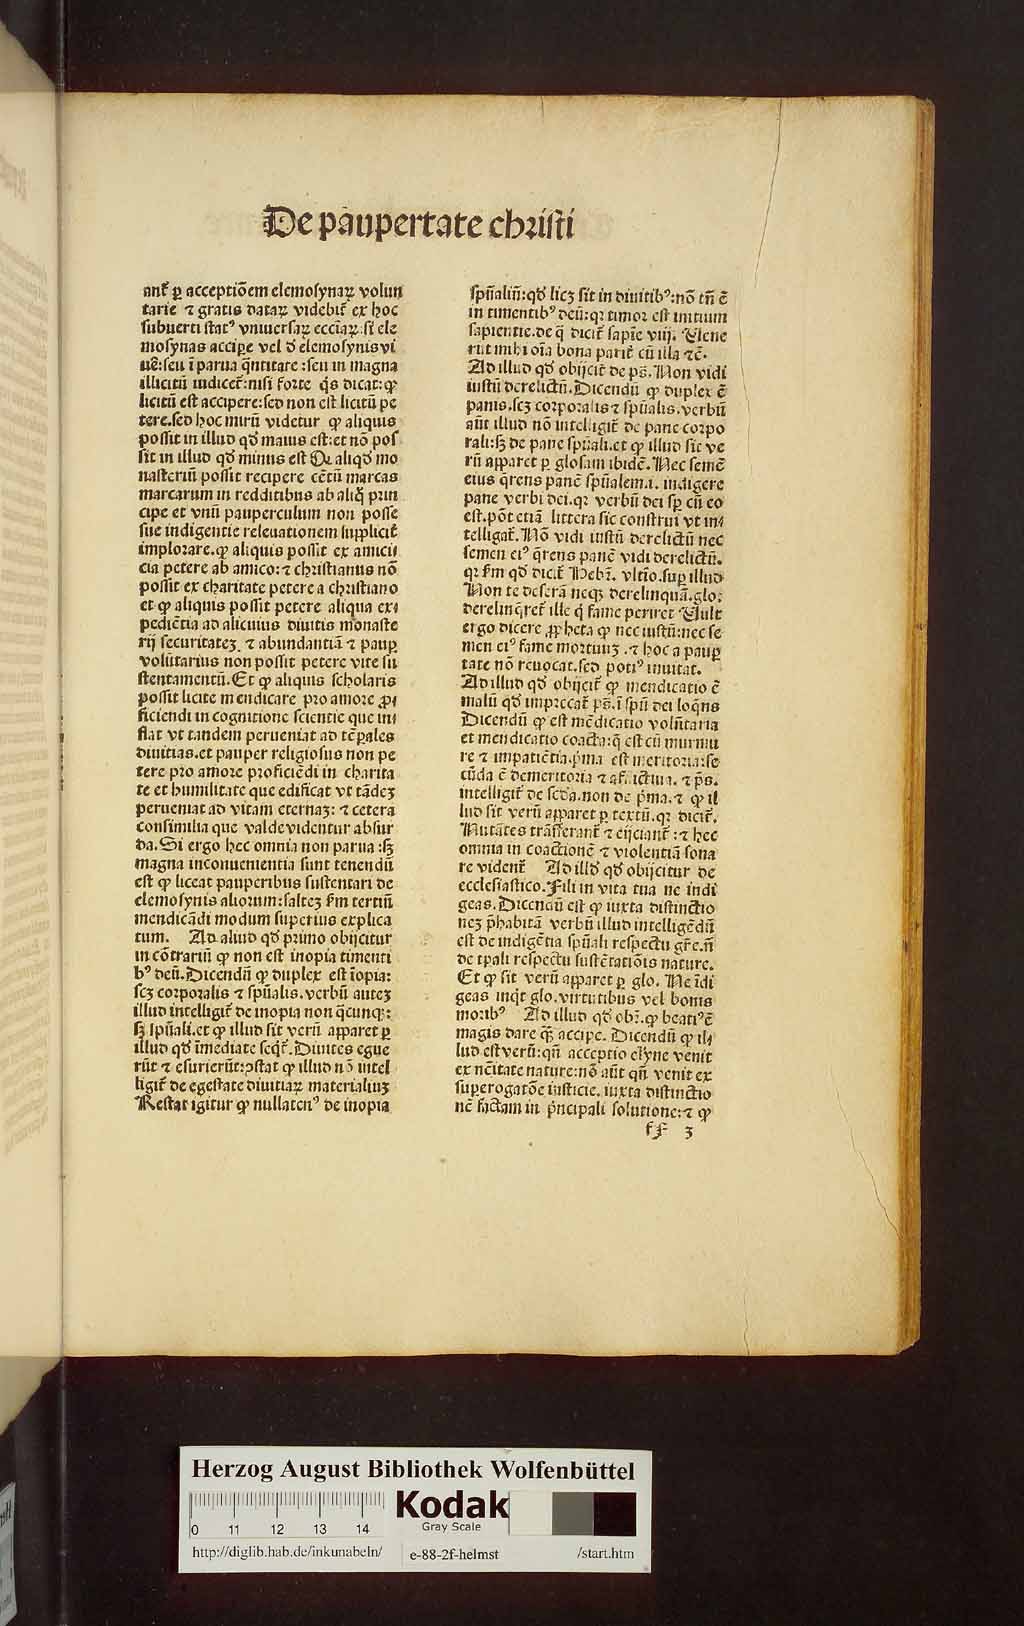 De paupertate christi
ant᷑ ꝑ acceptiōem elemosynaꝝ volun
tarie ⁊ gratis dataꝝ videbit᷑ ex hoc
subuerti statꝰ vniuersaꝝ eccl̄iaꝝ:si ele
mosynas accipe vel ð elemosynis vi
uē:seu ī parua q̄ntitate:seu in magna
illicitū iudicet᷑:nisi forte q̄s dicat:ꝙ
licitū est accipere:sed non est licitū pe
tere.sed hoc mirū videtur ꝙ aliquis
possit in illud qð maius est:et nō pos
sit in illud qð minus est Qꝛ aliqð mo
nasteriū possit recipere cētū marcas
marcarum in redditibus ab aliq̊ prin
cipe et vnū pauperculum non posse
sue indigentie releuationem supplicit᷑
implorare.ꝙ aliquis possit ex amici
cia petere ab amico:⁊ christianus nō
possit ex charitate petere a christiano
et ꝙ aliquis possit petere aliqua ex⸗
pediētia ad alicuius diuitis monaste
rij securitatez ⁊ abundantiā ⁊ pauꝑ
volūtarius non possit petere vite su
stentamentū.Et ꝙ aliquis scholaris
possit licite mendicare pro amore ꝓ⸗
ficiendi in cognitione scientie que in⸗
flat vt tandem perueniat ad tēꝑales
diuitias.et pauper religiosus non pe
tere pro amore proficiēdi in charita
te et humilitate que edificat vt tādez
perueniat ad vitam eternaz:⁊ cetera
consimilia que valde videntur absur
da.Si ergo hec omnia non parua:sꝫ
magna inconuenientia sunt tenendū
est ꝙ liceat pauperibus sustentari de
elemosynis aliorum:saltez ẜm tertiū
mendicādi modum superius explica
tum. Ad aliud qð primo obijcitur
in cōtrariū ꝙ non est inopia timenti
bꝰ deū.Dicendū ꝙ duplex est īopia:
scꝫ corporalis ⁊ sp̄ualis.verbū autez
illud intelligit᷑ de inopia non q̄cunqꝫ:
sꝫ sp̄uali.et ꝙ illud sit verū apparet ꝑ
illud qð īmediate seqt᷑.Diuites egue
rūt ⁊ esurierūt:ꝯstat ꝙ illud nō intel
ligit᷑ de egestate diuitiaꝝ materialiuz
Restat igitur ꝙ nullatenꝰ de inopia
sp̄ualiū:qð licꝫ sit in diuitibꝰ:nō tn̄ ē
in timentibꝰ deū:qꝛ timor est initium
sapientie.de q̄ dicit᷑ sapīe viij. Uene
rūt mihi oīa bona parit᷑ cū illa ⁊c̄.
Ad illud qð obijcit᷑ de ps̄.Non vidi
iustū derelictū.Dicendū ꝙ duplex ē
panis.scꝫ corporalis ⁊ sp̄ualis.verbū
aūt illud nō intelligit᷑ de pane corpo
rali:sꝫ de pane sp̄uali.et ꝙ illud sic ve
rū apparet ꝑ glosam ibidē.Nec semē
eius q̄rens panē sp̄ualem.i.indigere
pane verbi dei.qꝛ verbū dei sꝑ cū eo
est.pōt etiā littera sic construi vt in⸗
telligat᷑.Nō vidi iustū derelictū nec
semen eiꝰ q̄rens panē vidi derelictū.
qꝛ ẜm qð dic̄it᷑ Hebr̄. vltīo.suꝑ illud
Non te deserā neqꝫ derelinquā.glo:
derelinq̄ret᷑ ille q̇ fame periret Uult
ergo dicere ꝓpheta ꝙ nec iustū:nec se
men eiꝰ fame mortuuz.⁊ hoc a pauꝑ
tate nō reuocat.sed potiꝰ inuitat.
Ad illud qð obijcit᷑ ꝙ mendicatio ē
malū qð imprecat᷑ ps̄.ī sp̄u dei loq̄ns
Dicendū ꝙ est mēdicatio volūtaria
et mendicatio coacta:q̄ est cū murmu
re ⁊ impatiētia.pͥma est meritoria:se
cūda ē demeritoria ⁊ afflictiua.⁊ ps̄.
intelligit᷑ de scd̄a.non de pͥma.⁊ ꝙ il
lud sit verū apparet ꝑ textū.qꝛ dicit᷑.
Nutātes trāsferant᷑ ⁊ eijciant᷑:⁊ hec
omnia in coactionē ⁊ violentiā sona
re vident᷑ Ad illð qð obijcitur de
ecclesiastico.Fili in vita tua ne indi
geas.Dicendū est ꝙ iuxta distinctio
nez p̄habitā verbū illud intelligēdū
est de indigētia sp̄uali respectu gr̄e.n̄
de tp̄ali respectu sustētatiōis nature.
Et ꝙ sit verū apparet ꝑ glo. Ne īdi
geas inqͥt glo.virtutibus vel bonis
moribꝰ Ad illud qð obr̄.ꝙ beatiꝰ ē
magis dare q̄ꝫ accipe. Dicendū ꝙ il⸗
lud est verū:qn̄ acceptio elyn̄e venit
ex nc̄itate nature:nō aūt qn̄ venit ex
superogatōe iusticie.iuxta distinctio
nē factam in pͥncipali solutione:⁊ ꝙ
ff 3
Herzog August Bibliothek Wolfenbüttel
0 11 12 13 14
Kodak
Gray Scale
http://diglib.hab.de/inkunabeln/ e-88-2f-helmst /start.htm